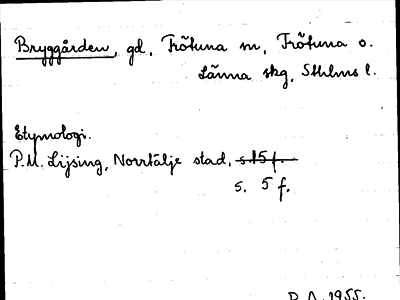 Bryggården, gd, Frötuna sn, Frötuna o.
Länna skg, Sthlms l.
Etymologi.
P.M. Lijsing, Norrtälje stad, s 15 f.
s. 5 f.
R.A. 1955.